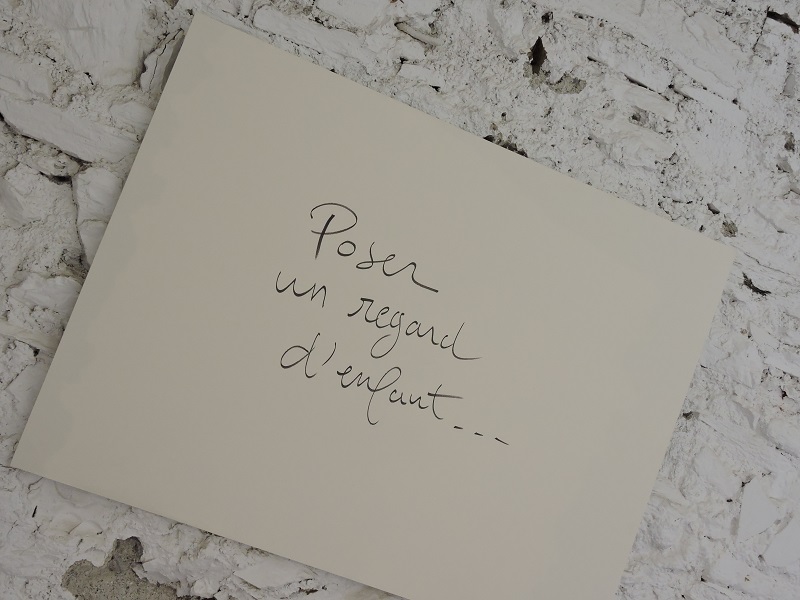 Poser
un regard
d'enfant...